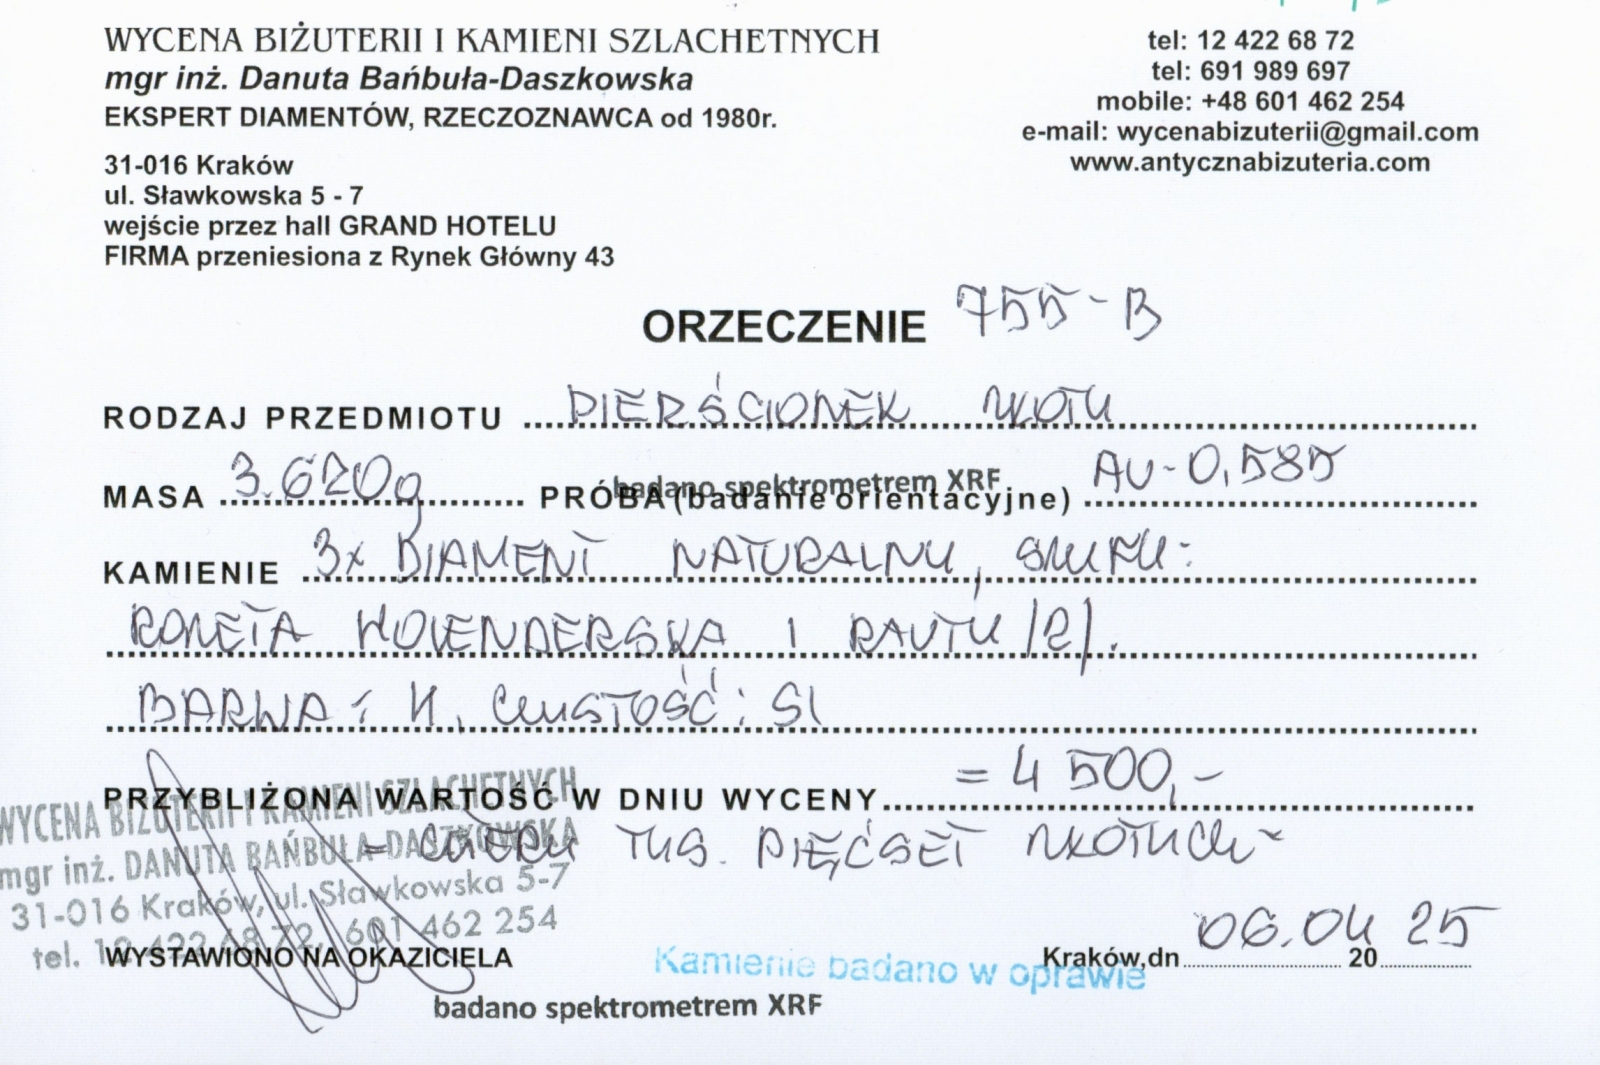 WYCENA BIŻUTERII I KAMIENI SZLACHETNYCH
mgr inż. Danuta Bańbuła-Daszkowska
EKSPERT DIAMENTÓW, RZECZOZNAWCA od 1980r.
31-016 Kraków
ul. Sławkowska 5 - 7
wejście przez hall GRAND HOTELU
FIRMA przeniesiona z Rynek Główny 43
tel: 12 422 68 72
tel: 691 989 697
mobile: +48 601 462 254
e-mail: wycenabizuterii@gmail.com
www.antycznabizuteria.com
ORZECZENIE 755-B
RODZAJ PRZEDMIOTU PIERŚCIONEK ZŁOTY
badano spektrometrem XRF
MASA 3.620g PRÓBA (badanie orientacyjne) AU-0,585
KAMIENIE 3x DIAMENT NATURALNY, SZLIFY:
ROZETA HOLENDERSKA I RAUTY /2/.
BARWA: H, CZYSTOŚĆ: SI
PRZYBLIŻONA WARTOŚĆ W DNIU WYCENY = 4 500,-
= CZTERY TYS. PIĘĆSET ZŁOTYCH~
WYCENA BIŻUTERII I KAMIENI SZLACHETNYCH
mgr inż. DANUTA BAŃBUŁA-DASZKOWSKA
31-016 Kraków, ul. Sławkowska 5-7
tel. 12 422 68 72, 601 462 254
WYSTAWIONO NA OKAZICIELA
Kamienie badano w oprawie
Kraków,dn 06.04 20 25
badano spektrometrem XRF